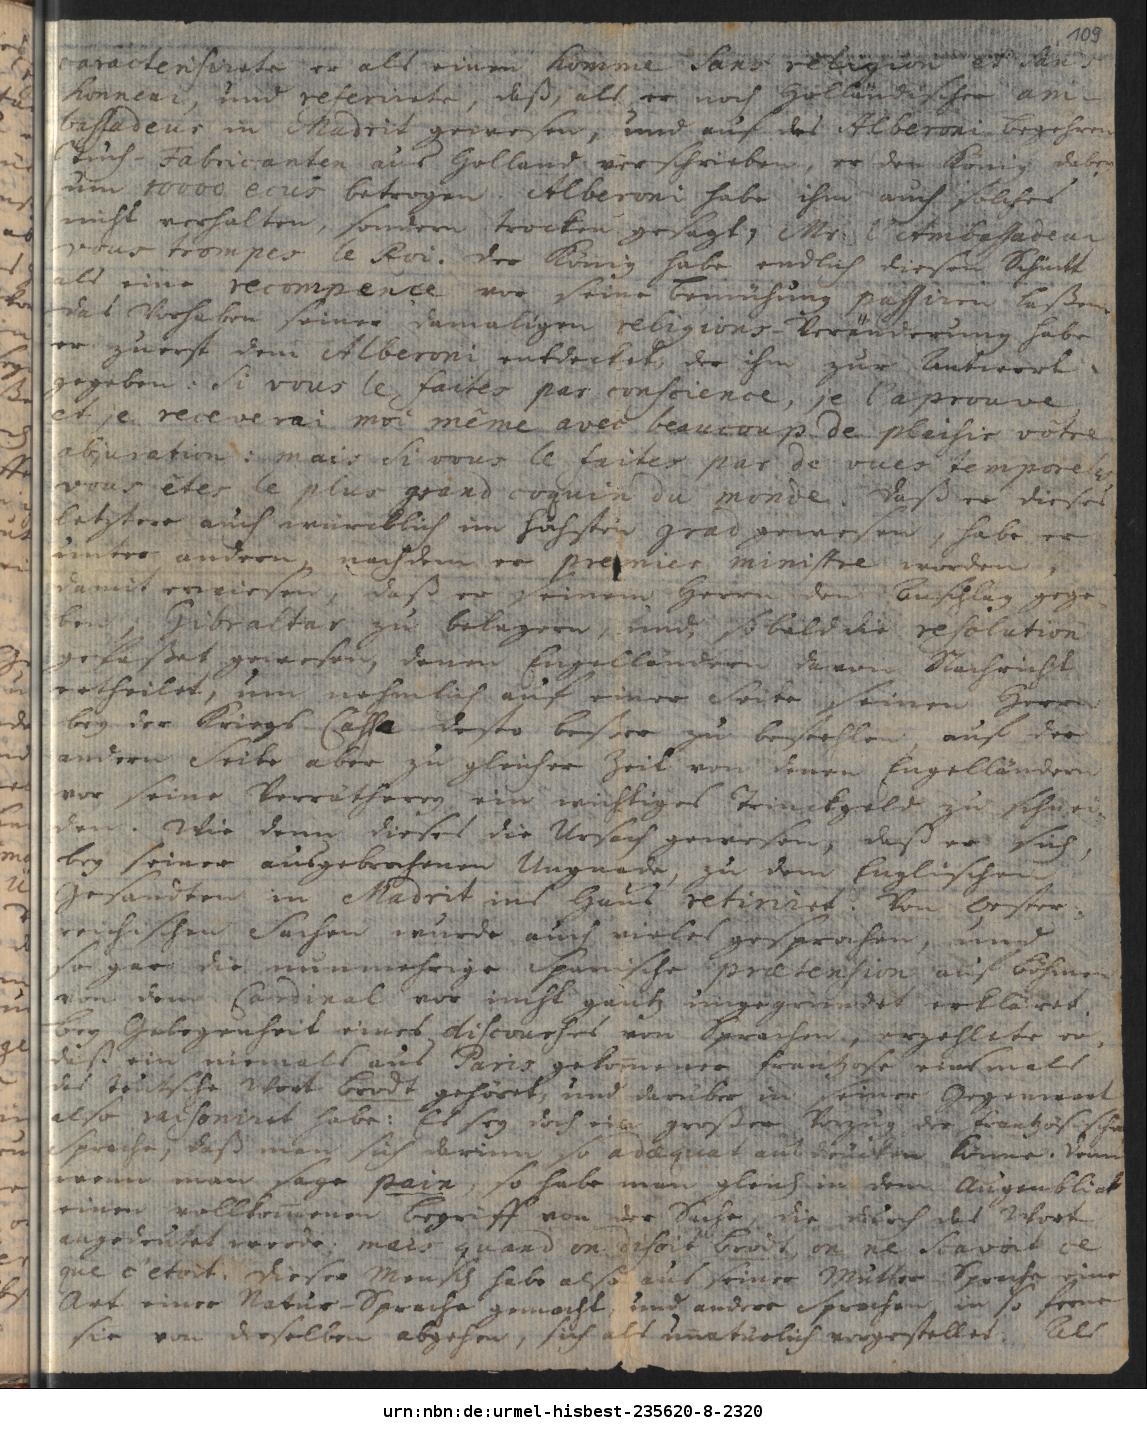 109
caracterisirete er als einen homme sans religion et sans
honneur, und referirete, daß, als er noch Holländischer am-
bassadeur in Madrit gewesen, und auf des Alberoni begehren
Tuch-Fabricanten aus Holland verschrieben, er den König dabey
um 10000 ecus betrogen. Alberoni habe ihm auch solches
nicht verhalten, sondern trocken gesagt, Mr. l'Ambassadeur
vous trompes le Roi. Der König habe endlich diesen Schnitt
als eine recompence vor seine bemühung passiren laßen.
Das Vorhaben seiner damaligen religions-Veränderung habe
er zuerst dem Alberoni entdecket, der ihm zur Antwort
gegeben: Si vous le faites par conscience, je l'aprouve
et je receverai moi même avec beaucoup de plaisir vôtre
abjuration: mais si vous le faites par de vues temporeles
vous êtes le plus grand coquin du monde. Daß er dieses
letztere auch würcklich im höchsten grad gewesen, habe er
unter andern, nachdem er premier ministre worden,
damit erwiesen, daß er seinem Herrn den Anschlag gege-
ben, Gibraltar zu belagern, und, so bald die resolution
gefaßet gewesen, denen Engelländern davon Nachricht
ertheilet, um nehmlich auf einer Seite seinen Herrn
bey der Kriegs-Cassa desto beßer zu bestehlen, auf der
andern Seite aber zu gleicher Zeit von denen Engelländern
vor seine Verrätherey ein wichtiges Trinckgeld zu schnei-
den. Wie denn dieses die Ursach gewesen, daß er sich,
bey seiner ausgebrochenen Ungnade, zu dem Englischen
Gesandten in Madrit ins Haus retiriret. Von Oester-
reichischen Sachen wurde auch vieles gesprochen, und
so gar die nunmehrige Spanische prætension auf Böhmen
von dem Cardinal vor nicht gantz ungegründet erkläret.
Bey Gelegenheit eines discourses von Sprachen, erzehlete er,
daß ein niemals aus Paris gekomener Frantzose einsmals
das teutsche Wort Brodt gehöret, und darüber in seiner Gegenwart
also raisoniret habe: Es sey doch ein großer Vorzug der frantzösischen
Sprache, daß man sich darinn so adæquat ausdrücken könne. Denn
wenn man sage pain, so habe man gleich in dem Augenblick
einen vollkomenen Begriff von der Sache, die durch das Wort
angedeutet werde; mais quand on disoit brodt, on ne scavoit ce
que c'etoit. Dieser Mensch habe also aus seiner Mutter-Sprache eine
Art einer Natur-Sprache gemacht, und andere Sprachen, in so ferne
sie von derselben abgehen, sich als unnatürlich vorgestellet. Als
urn:nbn:de:urmel-hisbest-235620-8-2320